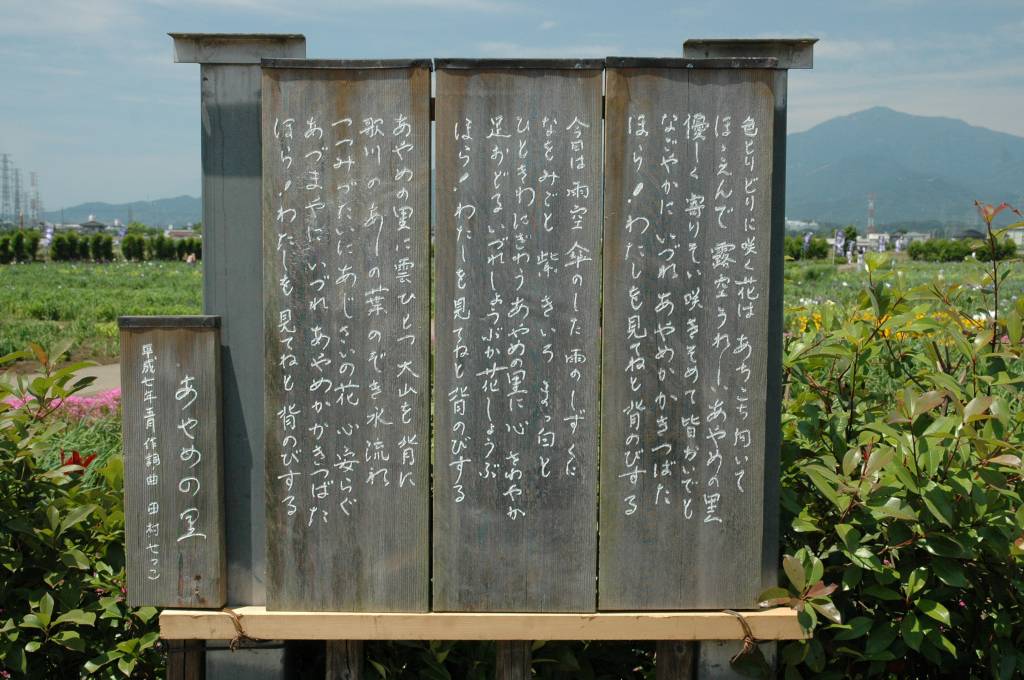 色とりどりに咲く花は あちこち向いて
ほゝえんで 露空うれしい あやめの里
優しく寄りそい咲きそめて皆おいでと
なごやかに いづれ あやめか かきつばた
ほら!わたしを見てねと背のびする
今日は雨空 傘のした 雨のしずくに
なをみごと 紫 きいろ まっ白と
ひときわにぎわうあやめの里に心 さわやか
足おどる いづれしょうぶか花しょうぶ
ほら!わたしを見てねと背のびする
あやめの里に雲ひとつ 大山を背に
歌川のあしの葉のぞき水流れ
つつみづたいにあじさいの花 心安らぐ
あづまやに いづれあやめかかきつばた
ほら!わたしを見てねと背のびする
あやめの里
平成七年五月 作詞曲 田村せつこ